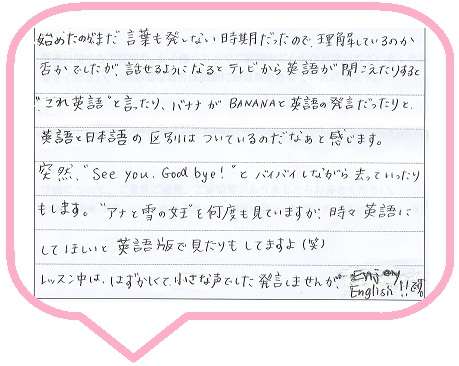 始めたのがまだ言葉も発しない時期だったので、理解しているのか
否かでしたが、話せるようになるとテレビから英語が聞こえたりすると
"これ英語"と言ったり、バナナがBANANAと英語の発言だったりと、
英語と日本語の区別はついているのだなぁと感じます。
突然、"See you. Good bye!"とバイバイしながら去っていったり
もします。"アナと雪の女王"を何度も見ていますが、時々英語に
してほしいと英語版で見たりもしてますよ(笑)
レッスン中は、はずかしくて小さな声でした発言しませんが、Enjoy
English!!です。